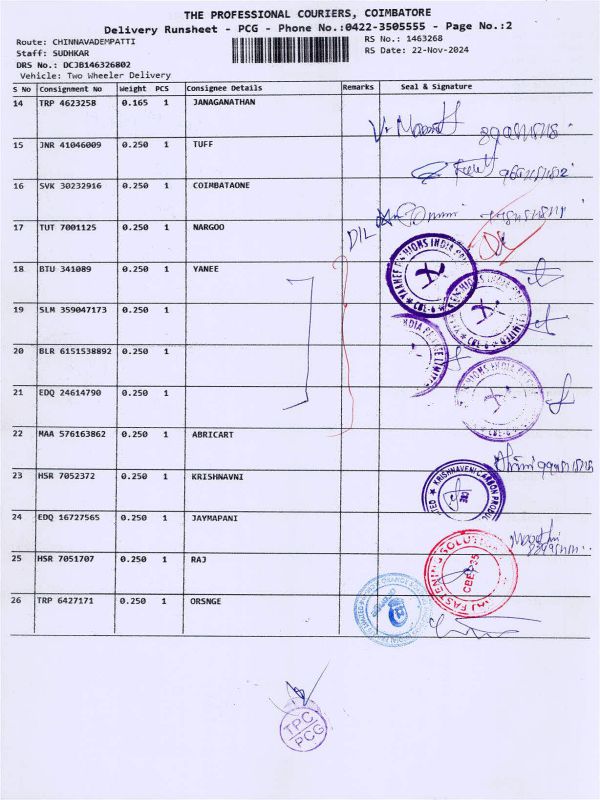 THE PROFESSIONAL COURIERS, COIMBATORE
Delivery Runsheet - PCG - Phone No.:0422-3505555 - Page No.:2
Route: CHINNAVADEMPATTI
RS No.: 1463268
Staff: SUDHKAR
RS Date: 22-Nov-2024
DRS No.: DCJB146326802
Vehicle: Two Wheeler Delivery
S No Consignment No Weight PCS Consignee Details Remarks Seal & Signature
14 TRP 4623258 0.165 1 JANAGANATHAN
15 JNR 41046009 0.250 1 TUFF
16 SVK 30232916 0.250 1 COIMBATAONE
17 TUT 7001125 0.250 1 NARGOO
D/L
18 BTU 341089 0.250 1 YANEE
19 SLM 359047173 0.250 1
20 BLR 6151538892 0.250 1
21 EDQ 24614790 0.250 1
22 MAA 576163862 0.250 1 ABRICART
23 HSR 7052372 0.250 1 KRISHNAVNI
KRISHNAVENI CARBON PRODU
24 EDQ 16727565 0.250 1 JAYMAPANI
25 HSR 7051707 0.250 1 RAJ
RAJ FASTENING SOLUTION
26 TRP 6427171 0.250 1 ORSNGE
TPC
PCG